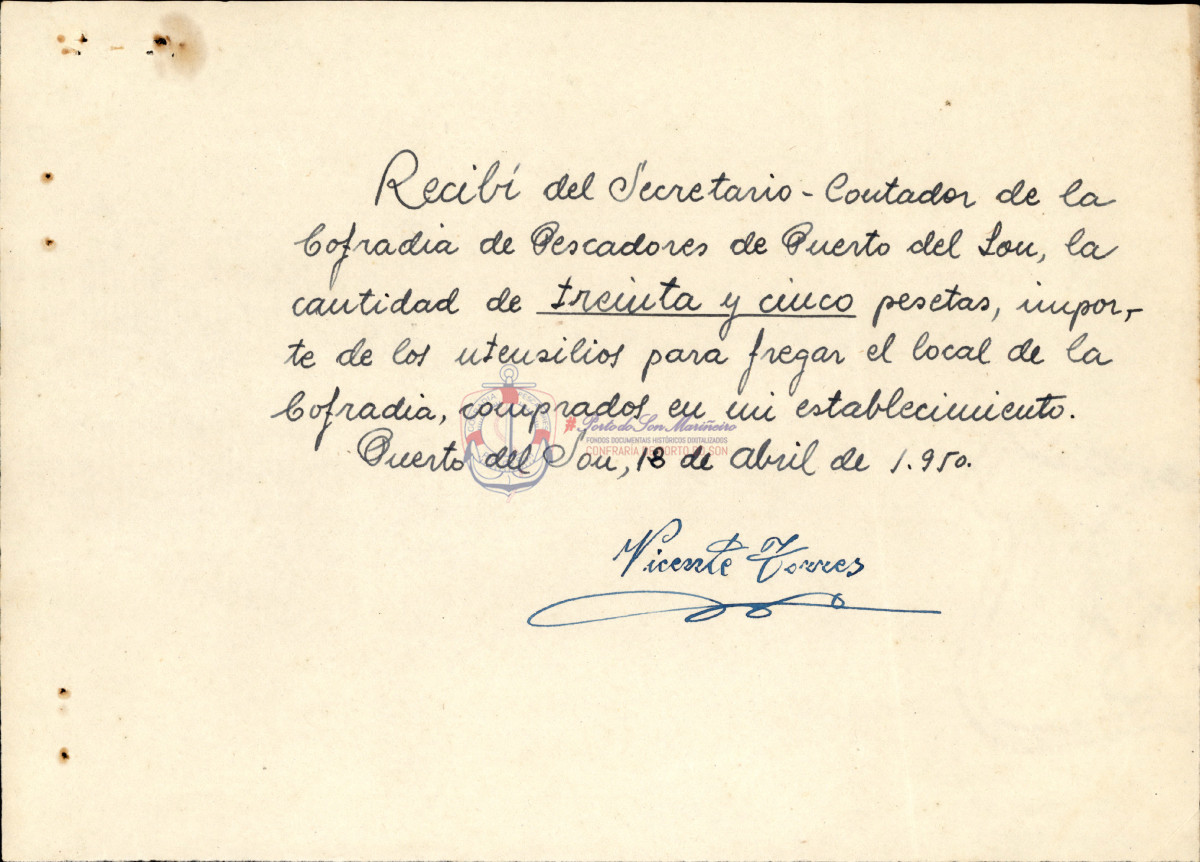 Recibí del Secretario-Contador de la
Cofradia de Pescadores de Puerto del Son, la
cantidad de treinta y cinco pesetas, impor-
te de los utensilios para fregar el local de la
Cofradia, comprados en mi establecimiento.
#Porto do Son Mariñeiro
FONDOS DOCUMENTAIS HISTÓRICOS DIXITALIZADOS
CONFRARIA DE PORTO DO SON
Puerto del Son, 18 de Abril de 1.950.
Vicente Torres